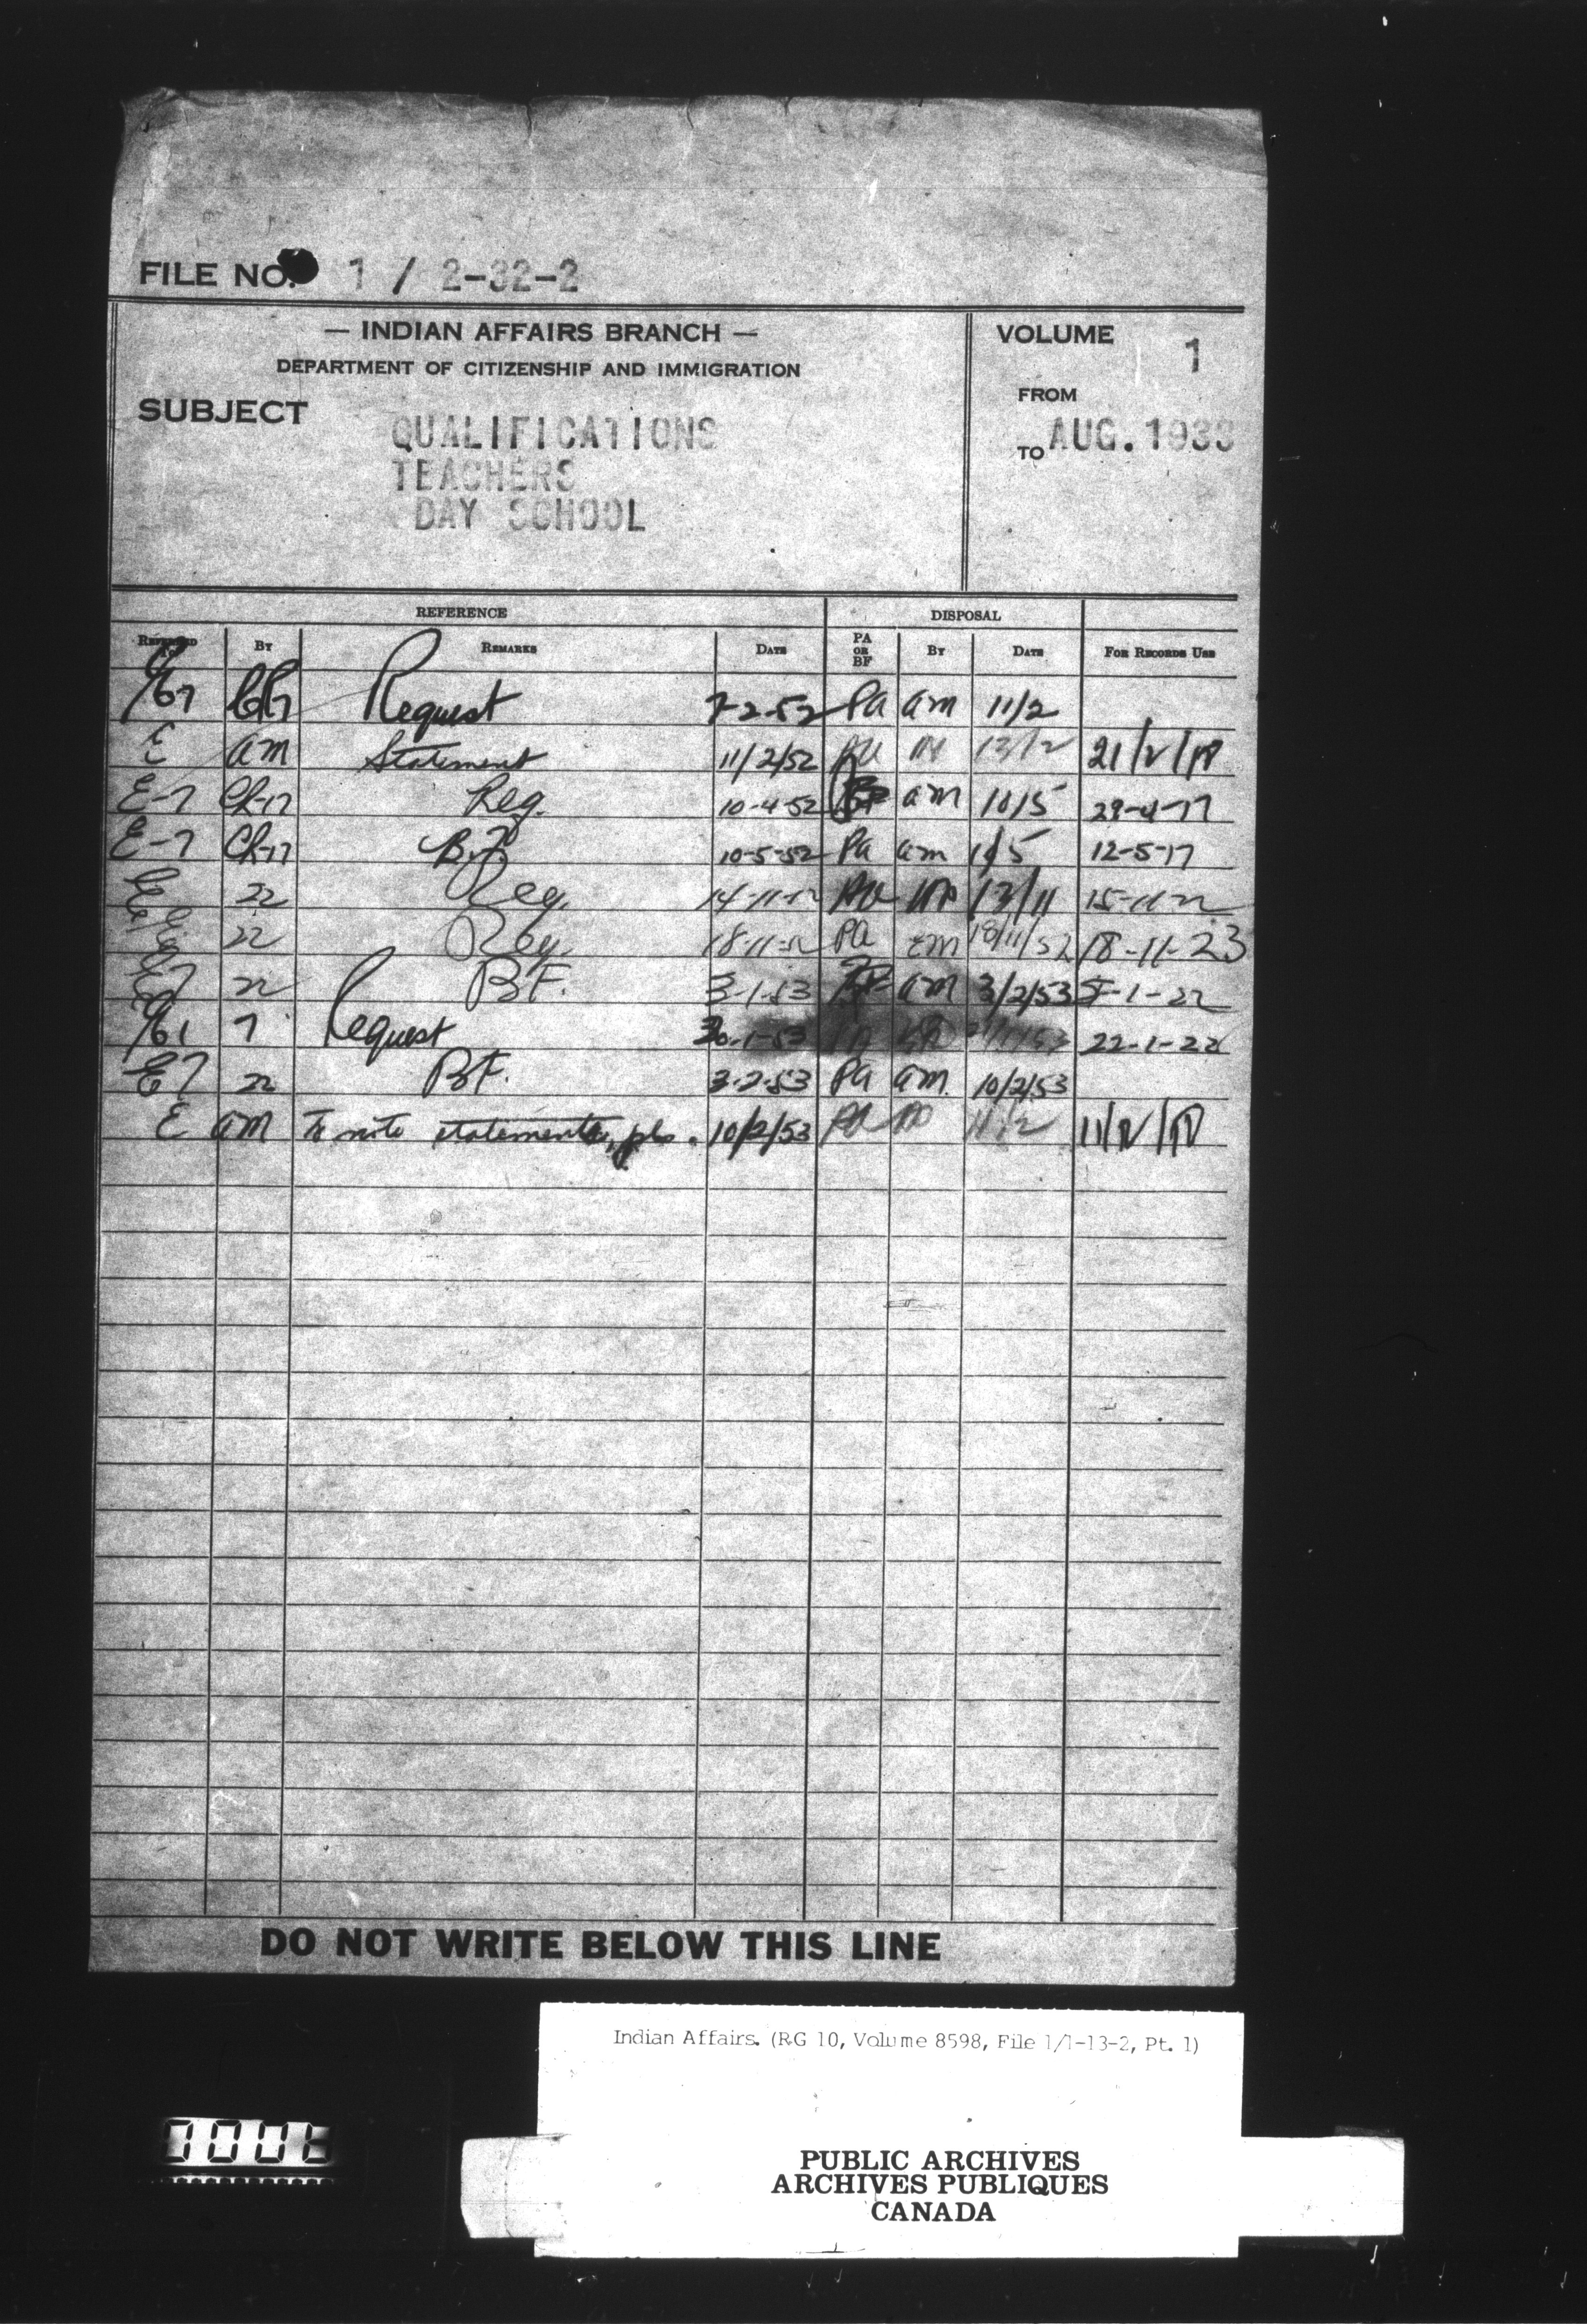 FILE NO. 1 / 2-32-2
— INDIAN AFFAIRS BRANCH —
DEPARTMENT OF CITIZENSHIP AND IMMIGRATION
SUBJECT
QUALIFICATIONS
TEACHERS
DAY SCHOOL
VOLUME 1
FROM
TO AUG. 193
REFERENCE DISPOSAL
REFERRED TO BY REMARKS DATE PA OR BF BY DATE FOR RECORDS USE
Request 7-2-52 Pa am 11/2
E am Statement 11/2/52 13/2
E-7 Ch-17 Req. 10-4-52 am 10/5 29-4-17
E-7 Ch-17 B.F. 10-5-52 Pa am 12-5-17
22 Req. 13/11 15-11-22
22 Req. PA 18/11/52 18-11-23
E7 22 BF. 3-1-53 am 3/2/53 5-1-22
7 Request 22-1-22
E7 22 BF. 3-2-53 PA am. 10/2/53
E am To note statements, pls. 10/2/53 11/2
DO NOT WRITE BELOW THIS LINE
Indian Affairs. (RG 10, Volume 8598, File 1/1-13-2, Pt. 1)
PUBLIC ARCHIVES
ARCHIVES PUBLIQUES
CANADA